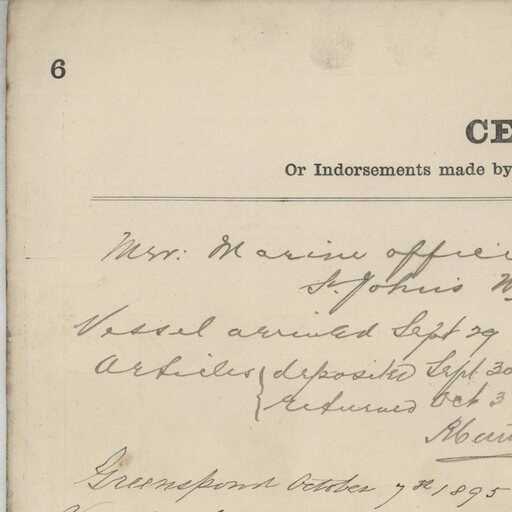 6
CE
Or Indorsements made by
Mer: Marine offici
St. Johns N
Vessel arrived Sept 29
Articles { deposited Sept 30
returned Oct 3
Greenspond October 7th 1895